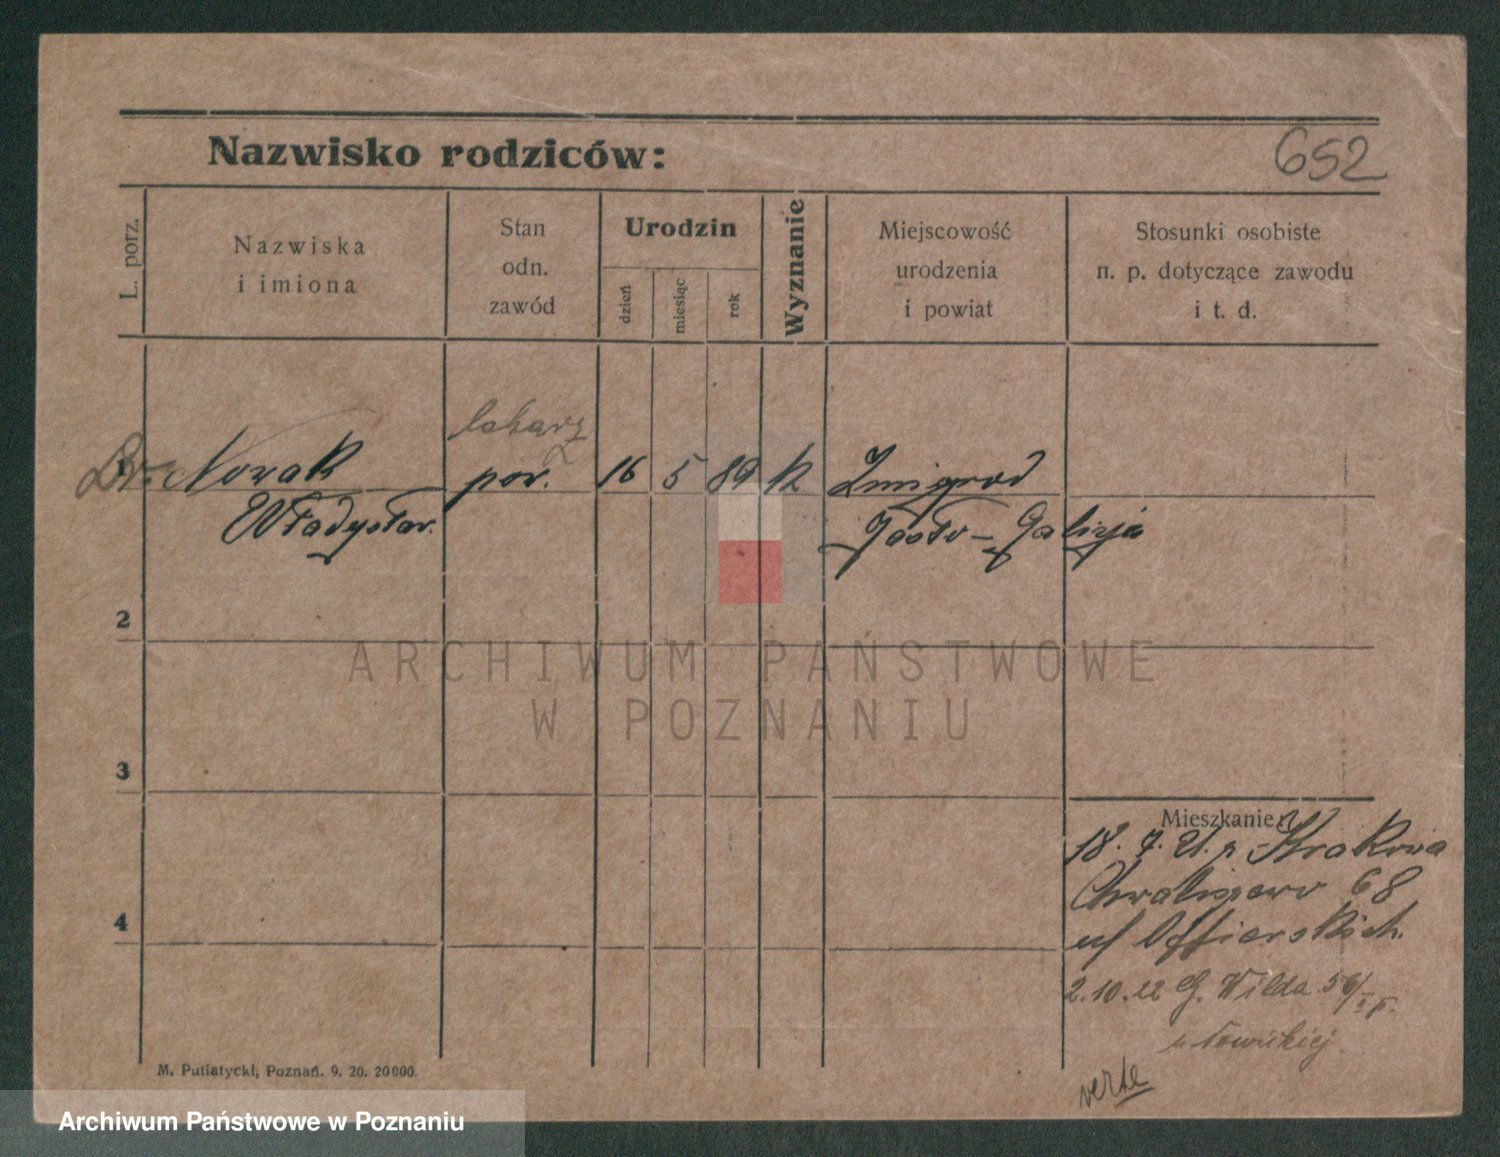 652
Nazwisko rodziców:
L. porz.
Nazwiska
i imiona
Stan
odn.
zawód
Urodzin
dzień
miesiąc
rok
Wyznanie
Miejscowość
urodzenia
i powiat
Stosunki osobiste
n. p. dotyczące zawodu
i t. d.
lekarz
Dr. Nowak por. 16 5 89 k Żmigród
Władysław. Jasło - Galizja
2
ARCHIWUM PAŃSTWOWE
W POZNANIU
3
Mieszkanie
18. 7. 21. z Krakowa
4
Chwaliszewo 68
u/ Offierskich.
2.10.22 G. Wilda 56/I p.
u Nowickiej
verte
M. Putiatycki, Poznań. 9. 20. 20000.
Archiwum Państwowe w Poznaniu